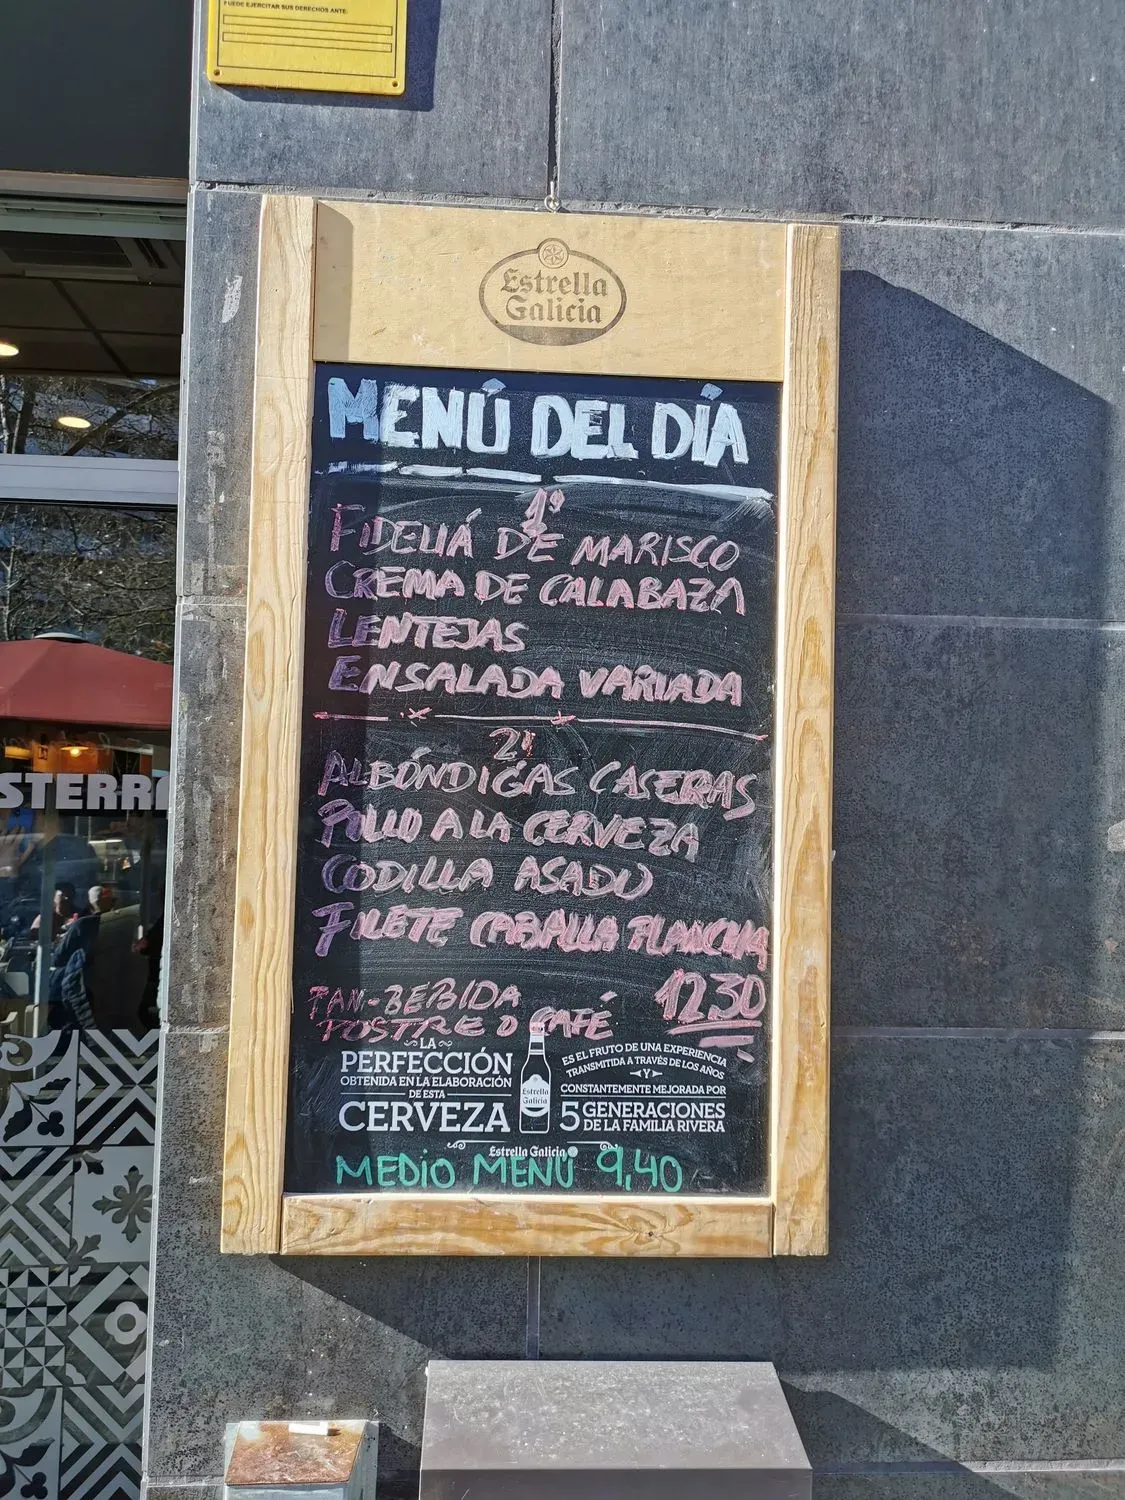 PUEDE EJERCITAR SUS DERECHOS ANTE:
Estrella
Galicia
MENÚ DEL DÍA
1º
FIDEUÁ DE MARISCO
CREMA DE CALABAZA
LENTEJAS
ENSALADA VARIADA
2º
ALBÓNDIGAS CASERAS
POLLO A LA CERVEZA
CODILLA ASADO
FILETE CABALLA PLANCHA
PAN-BEBIDA
POSTRE O CAFÉ
12,30
LA
PERFECCIÓN
OBTENIDA EN LA ELABORACIÓN
DE ESTA
CERVEZA
Estrella
Galicia
ES EL FRUTO DE UNA EXPERIENCIA
TRANSMITIDA A TRAVÉS DE LOS AÑOS
Y
CONSTANTEMENTE MEJORADA POR
5 GENERACIONES
DE LA FAMILIA RIVERA
Estrella Galicia
MEDIO MENÚ 9,40
STERRA